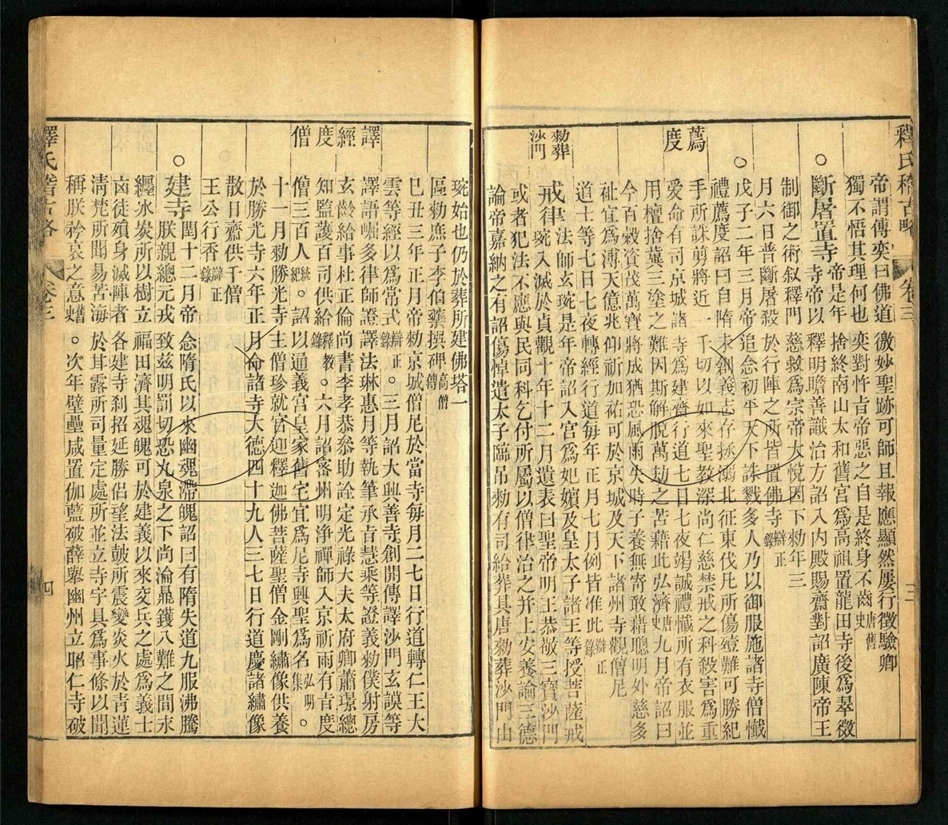 釋氏稽古略 卷三
帝謂傅奕曰佛道微妙聖跡可師且報應顯然屢行徵驗卿
獨不悟其理何也奕對忤旨帝惡之自是終身不齒 唐舊史
帝是年捨終南山太和舊宮爲高祖置龍田寺後爲翠微
斷屠置寺 寺帝以釋明瞻善識治方詔入內殿賜齋對詔廣陳帝王
制御之術敘釋門慈救爲宗帝大悅因下勅年三
月六日普斷屠殺於行陣之所皆置佛寺 辯正錄
戊子二年三月帝追念初平天下誅戮多人乃以御服施諸寺僧懺
薦度
禮薦度詔曰自隋末創義志存拯溺北征東伐所傷殪難可勝紀
手所誅剪將近一千切以如來聖教深尚仁慈禁戒之科殺害爲重
愛命有司京城諸寺爲建齋行道七日七夜竭誠禮懺所有衣服並
用檀捨冀三塗之難因斯解脫萬劫之苦藉此弘濟 唐史 九月帝詔曰
今百穀資茂萬寶將成猶恐風雨失時字養無寄敢藉聰明外慈多
祉宜爲溥天億兆仰祈加祐可於京城及天下諸州寺觀僧尼
道士等七日七夜轉經行道每年正月七月例皆准此 辯正錄
勅葬沙門
戒律 法師玄琬是年帝詔入宮爲妃嬪及皇太子諸王等授菩薩戒
琬入滅於貞觀十年十二月遺表曰聖帝明王恭敬三寶沙門
或者犯法不應與民同科乞付所屬以僧律治之并上安養論三德
論帝嘉納之有詔傷悼遣太子臨吊勅有司給葬具唐勅葬沙門由
琬始也仍於葬所建佛塔一
區勅庶子李伯藥撰碑 高僧傳
己丑三年正月帝勅京城僧尼於當寺每月二七日行道轉仁王大
雲等經以爲常式 辯正錄 三月詔大興善寺創開傳譯沙門玄謨等
譯經
譯語㘖多律師證譯法琳惠月等執筆承旨慧乘等證義勅僕射房
玄齡給事杜正倫尚書李孝恭叅助詮定光祿大夫太府卿蕭璟總
度僧
知監護百司供給 釋教錄 六月詔密州明淨禪師入京祈雨有旨度
僧三百人 統紀 詔以通義宮皇家舊宅宜爲尼寺興聖爲名 弘明集
十一月勅勝光寺主僧珍就宮迎釋迦佛菩薩聖僧金剛繡像供養
於勝光寺六年正月命諸寺大德四十九人三七日行道慶諸繡像
散日齋供千僧
王公行香 辯正錄
建寺 十二月帝念隋氏以來幽魂滯魄詔曰有隋失道九服沸騰
朕親總元戎致茲明罰切恐九泉之下尚淪鼎鑊八難之間永
纏氷炭所以樹立福田濟其魂魄可於建義以來交兵之處爲義士
㐫徒殞身滅陣者各建寺刹招延勝侶望法鼓所震變炎火於青蓮
清梵所聞易苦海於甘露所司量定處所並立寺宇具爲事條以聞
稱朕矜哀之意 次年壁壘咸置伽藍破薛舉幽州立昭仁寺破
釋氏稽古略 卷三 四